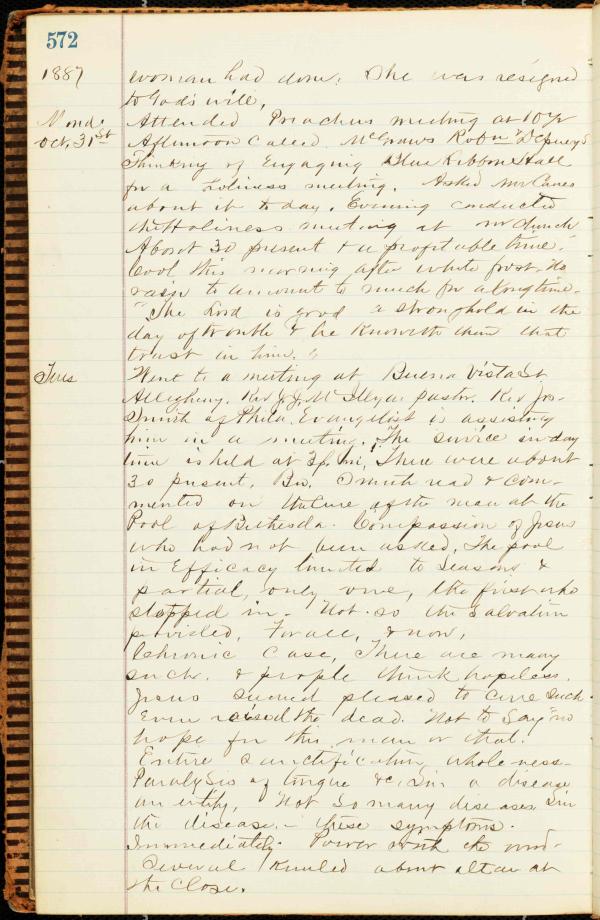 572
1887
woman had done. She was resigned
to God's will,
Mond.
Oct. 31st
Attended Preachers meeting at 10
Afternoon Called McGraws
Thinking of Engaging Blue Ribbon Hall
for a Holiness meeting. Asked Mr
about it to day. Evening conducted
the Holiness meeting at our church
About 30 present & a profitable time.
Cool this morning after white frost. No
rain to amount to much for a long time.
"The Lord is good a stronghold in the
day of trouble & he knoweth them that
trust in him."
Tues
Went to a meeting at Buena Vista St
Allegheny. Rev J.J. pastor. Rev Jos-
Smith of Phila. Evangelist is assisting
him in a meeting. The service in day
time is held at 3 p.m. There were about
30 present. Bro. Smith read & com-
mented on the cure of the man at the
Pool of Bethesda. Compassion of Jesus
who had not been asked, The pool
in Efficacy limited to seasons &
partial, only one, the first who
stepped in. Not so the salvation
provided, For all, & now,
Chronic Case, There are many
such. & people think hopeless.
Jesus seemed pleased to cure such
Even raised the dead. Not to say "no
hope for this man or that.
Entire sanctification, wholeness-
Paralysis of tongue &c. Sin a disease
an entity, Not so many diseases Sin
the disease,- these symptoms.
Immediately. Power with the word-
Several kneeled about altar at
the close.